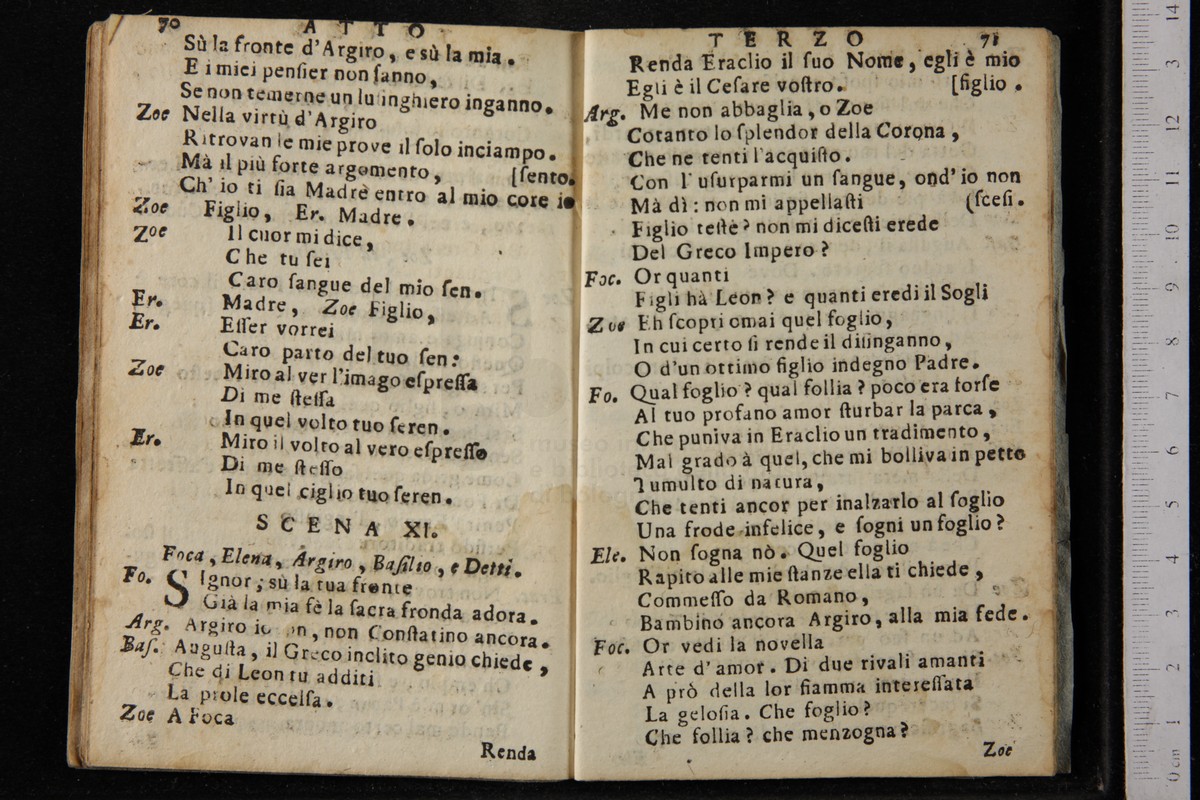 70 ATTO
Sù la fronte d'Argiro, e sù la mia.
E i miei penſier non ſanno,
Se non temerne un luſinghiero inganno.
Zoe Nella virtù d'Argiro
Ritrovan le mie prove il ſolo inciampo.
Mà il più forte argomento, [ſento.
Ch' io ti ſia Madrè entro al mio core io
Zoe Figlio, Er. Madre.
Zoe Il cuor mi dice,
Che tu ſei
Caro ſangue del mio ſen.
Er. Madre, Zoe Figlio,
Er. Eſſer vorrei
Caro parto del tuo ſen:
Zoe Miro al ver l'imago eſpreſſa
Di me ſteſſa
In quel volto tuo ſeren.
Er. Miro il volto al vero eſpreſſo
Di me ſteſſo
In quel ciglio tuo ſeren.
SCENA XI.
Foca, Elena, Argiro, Baſilio, e Detti.
Fo. SIgnor; sù la tua fronte
Già la mia fè la ſacra fronda adora.
Arg. Argiro io ſon, non Conſtatino ancora.
Baſ. Auguſta, il Greco inclito genio chiede,
Che di Leon tu additi
La prole eccelſa.
Zoe A Foca
Renda
TERZO 71
Renda Eraclio il ſuo Nome, egli è mio
Egli è il Ceſare voſtro. [figlio.
Arg. Me non abbaglia, o Zoe
Cotanto lo ſplendor della Corona,
Che ne tenti l'acquiſto.
Con l' uſurparmi un ſangue, ond' io non
Mà dì: non mi appellaſti (ſceſi.
Figlio teſtè? non mi diceſti erede
Del Greco Impero?
Foc. Or quanti
Figli hà Leon? e quanti eredi il Sogli
Zoe Eh ſcopri omai quel foglio,
In cui certo ſi rende il diſinganno,
O d'un ottimo figlio indegno Padre.
Fo. Qual foglio? qual follia? poco era forſe
Al tuo profano amor ſturbar la parca,
Che puniva in Eraclio un tradimento,
Mal grado à quel, che mi bolliva in petto
Tumulto di natura,
Che tenti ancor per inalzarlo al ſoglio
Una frode infelice, e ſogni un foglio?
Ele. Non ſogna nò. Quel foglio
Rapito alle mie ſtanze ella ti chiede,
Commeſſo da Romano,
Bambino ancora Argiro, alla mia fede.
Foc. Or vedi la novella
Arte d' amor. Di due rivali amanti
A prò della lor fiamma intereſſata
La geloſia. Che foglio?
Che follia? che menzogna?
Zoe